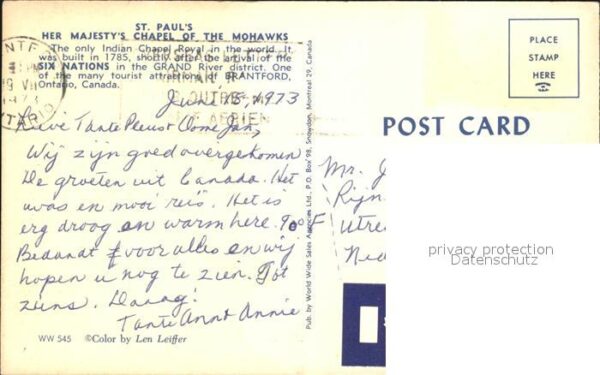 ST. PAUL'S
HER MAJESTY'S CHAPEL OF THE MOHAWKS
The only Indian Chapel Royal in the world. It
was built in 1785, shortly after the arrival of the
SIX NATIONS in the GRAND River district. One
of the many tourist attractions of BRANTFORD,
Ontario, Canada.
June 15, 1973
Lieve Tante Pleust Oome Jan,
Wij zijn goed overgekomen
De groeten uit Canada. Het
was en mooi reis. Het is
erg droog en warm here. 70° F
Bedandt voor alles en wij
hopen u nog te zien. Tot
ziens. Daaag!
Tante Ann Annie
WW 545 ©Color by Len Leiffer
Pub. by World Wide Sales Agencies Ltd., P.O. Box 98, Snowdon, Montreal 29, Canada
PLACE
STAMP
HERE
POST CARD
Mr. J
Rijn
Utre
Ned
privacy protection
Datenschutz